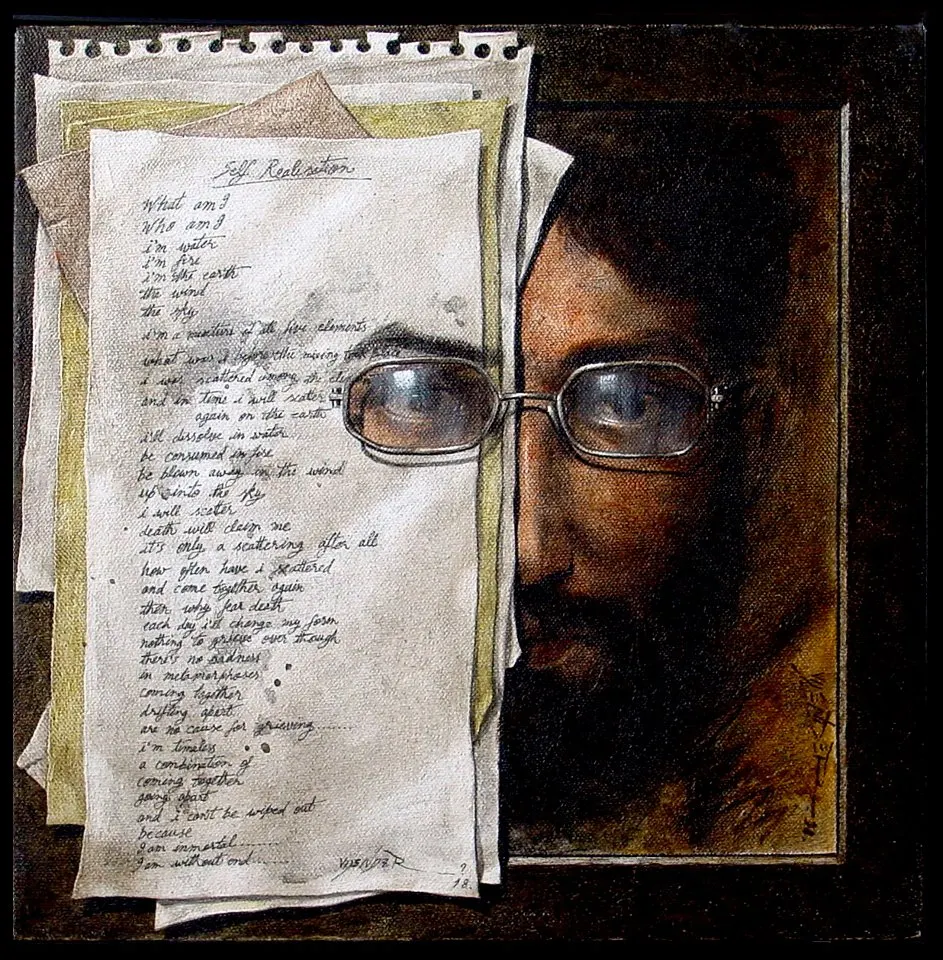 Self Realisation
What am I
Who am I
i'm water
i'm fire
i'm the earth
the wind
the sky
i'm a mixture of all five elements
what was i before the mixing took place
i was scattered among the
and in time i will scater
again on the earth
i'll dissolve in water
be consumed in fire
be blown away in the wind
up into the sky
i will scatter
death will claim me
it's only a scattering after all
how often have i scattered
and come together again
then why fear death
each day i'll change my form
nothing to grieve over though
there's no sadness
in metamorphoses
coming together
drifting apart
are no cause for grieving......
i'm timeless
a combination of
coming together
going apart
and i can't be wiped out
because
I am immortal........
I am without end......